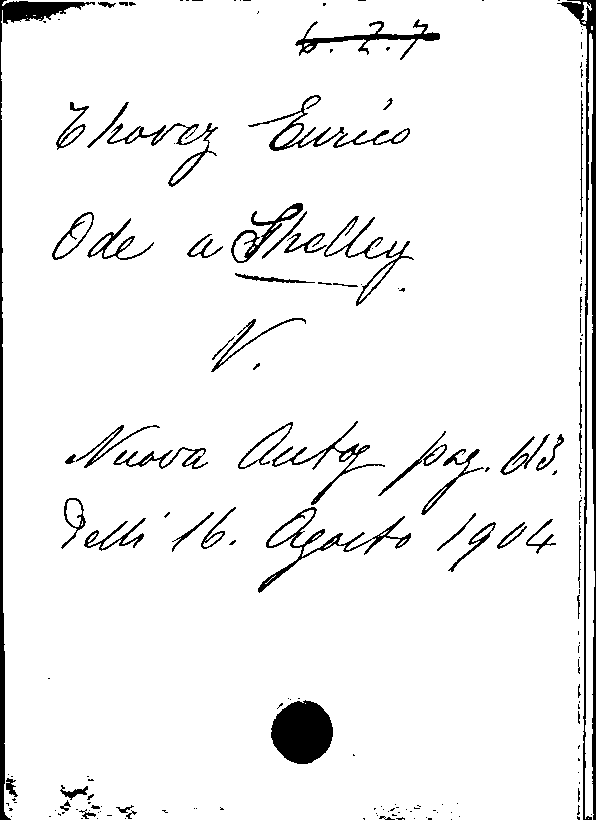 6.2.7
Thovez Enrico
Ode a Shelley.
N.
Nuova Antog pag. 613.
Delli 16. Agosto 1904